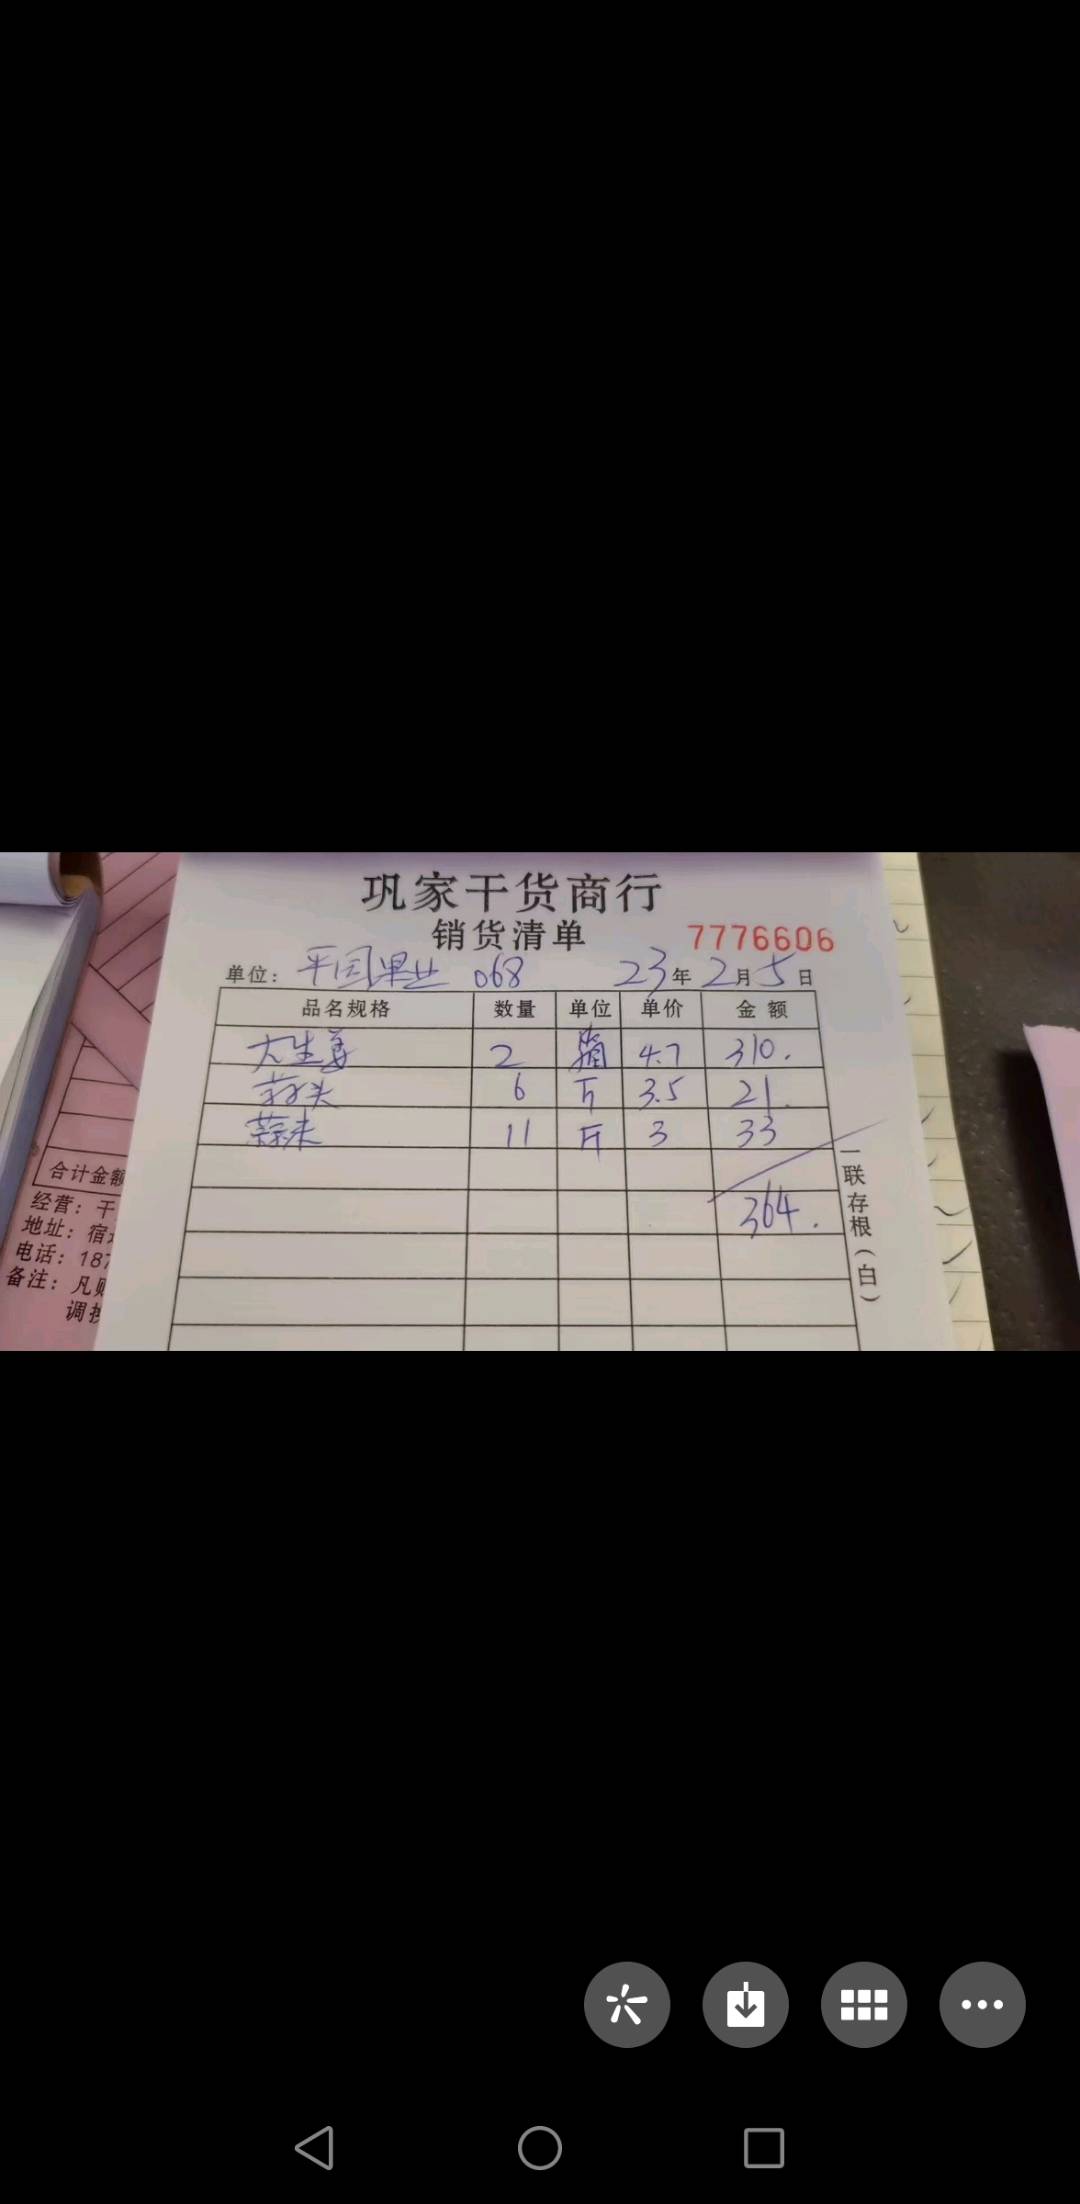 巩家干货商行
销货清单 7776606
单位: 平园果业 068 23年2月5日
品名规格 数量 单位 单价 金额
大生姜 2 箱 4.7 310.
蒜头 6 斤 3.5 21.
蒜米 11 斤 3 33
364.
一联存根(白)
合计金额
经营: 干
地址: 宿
电话: 187
备注: 凡
调换